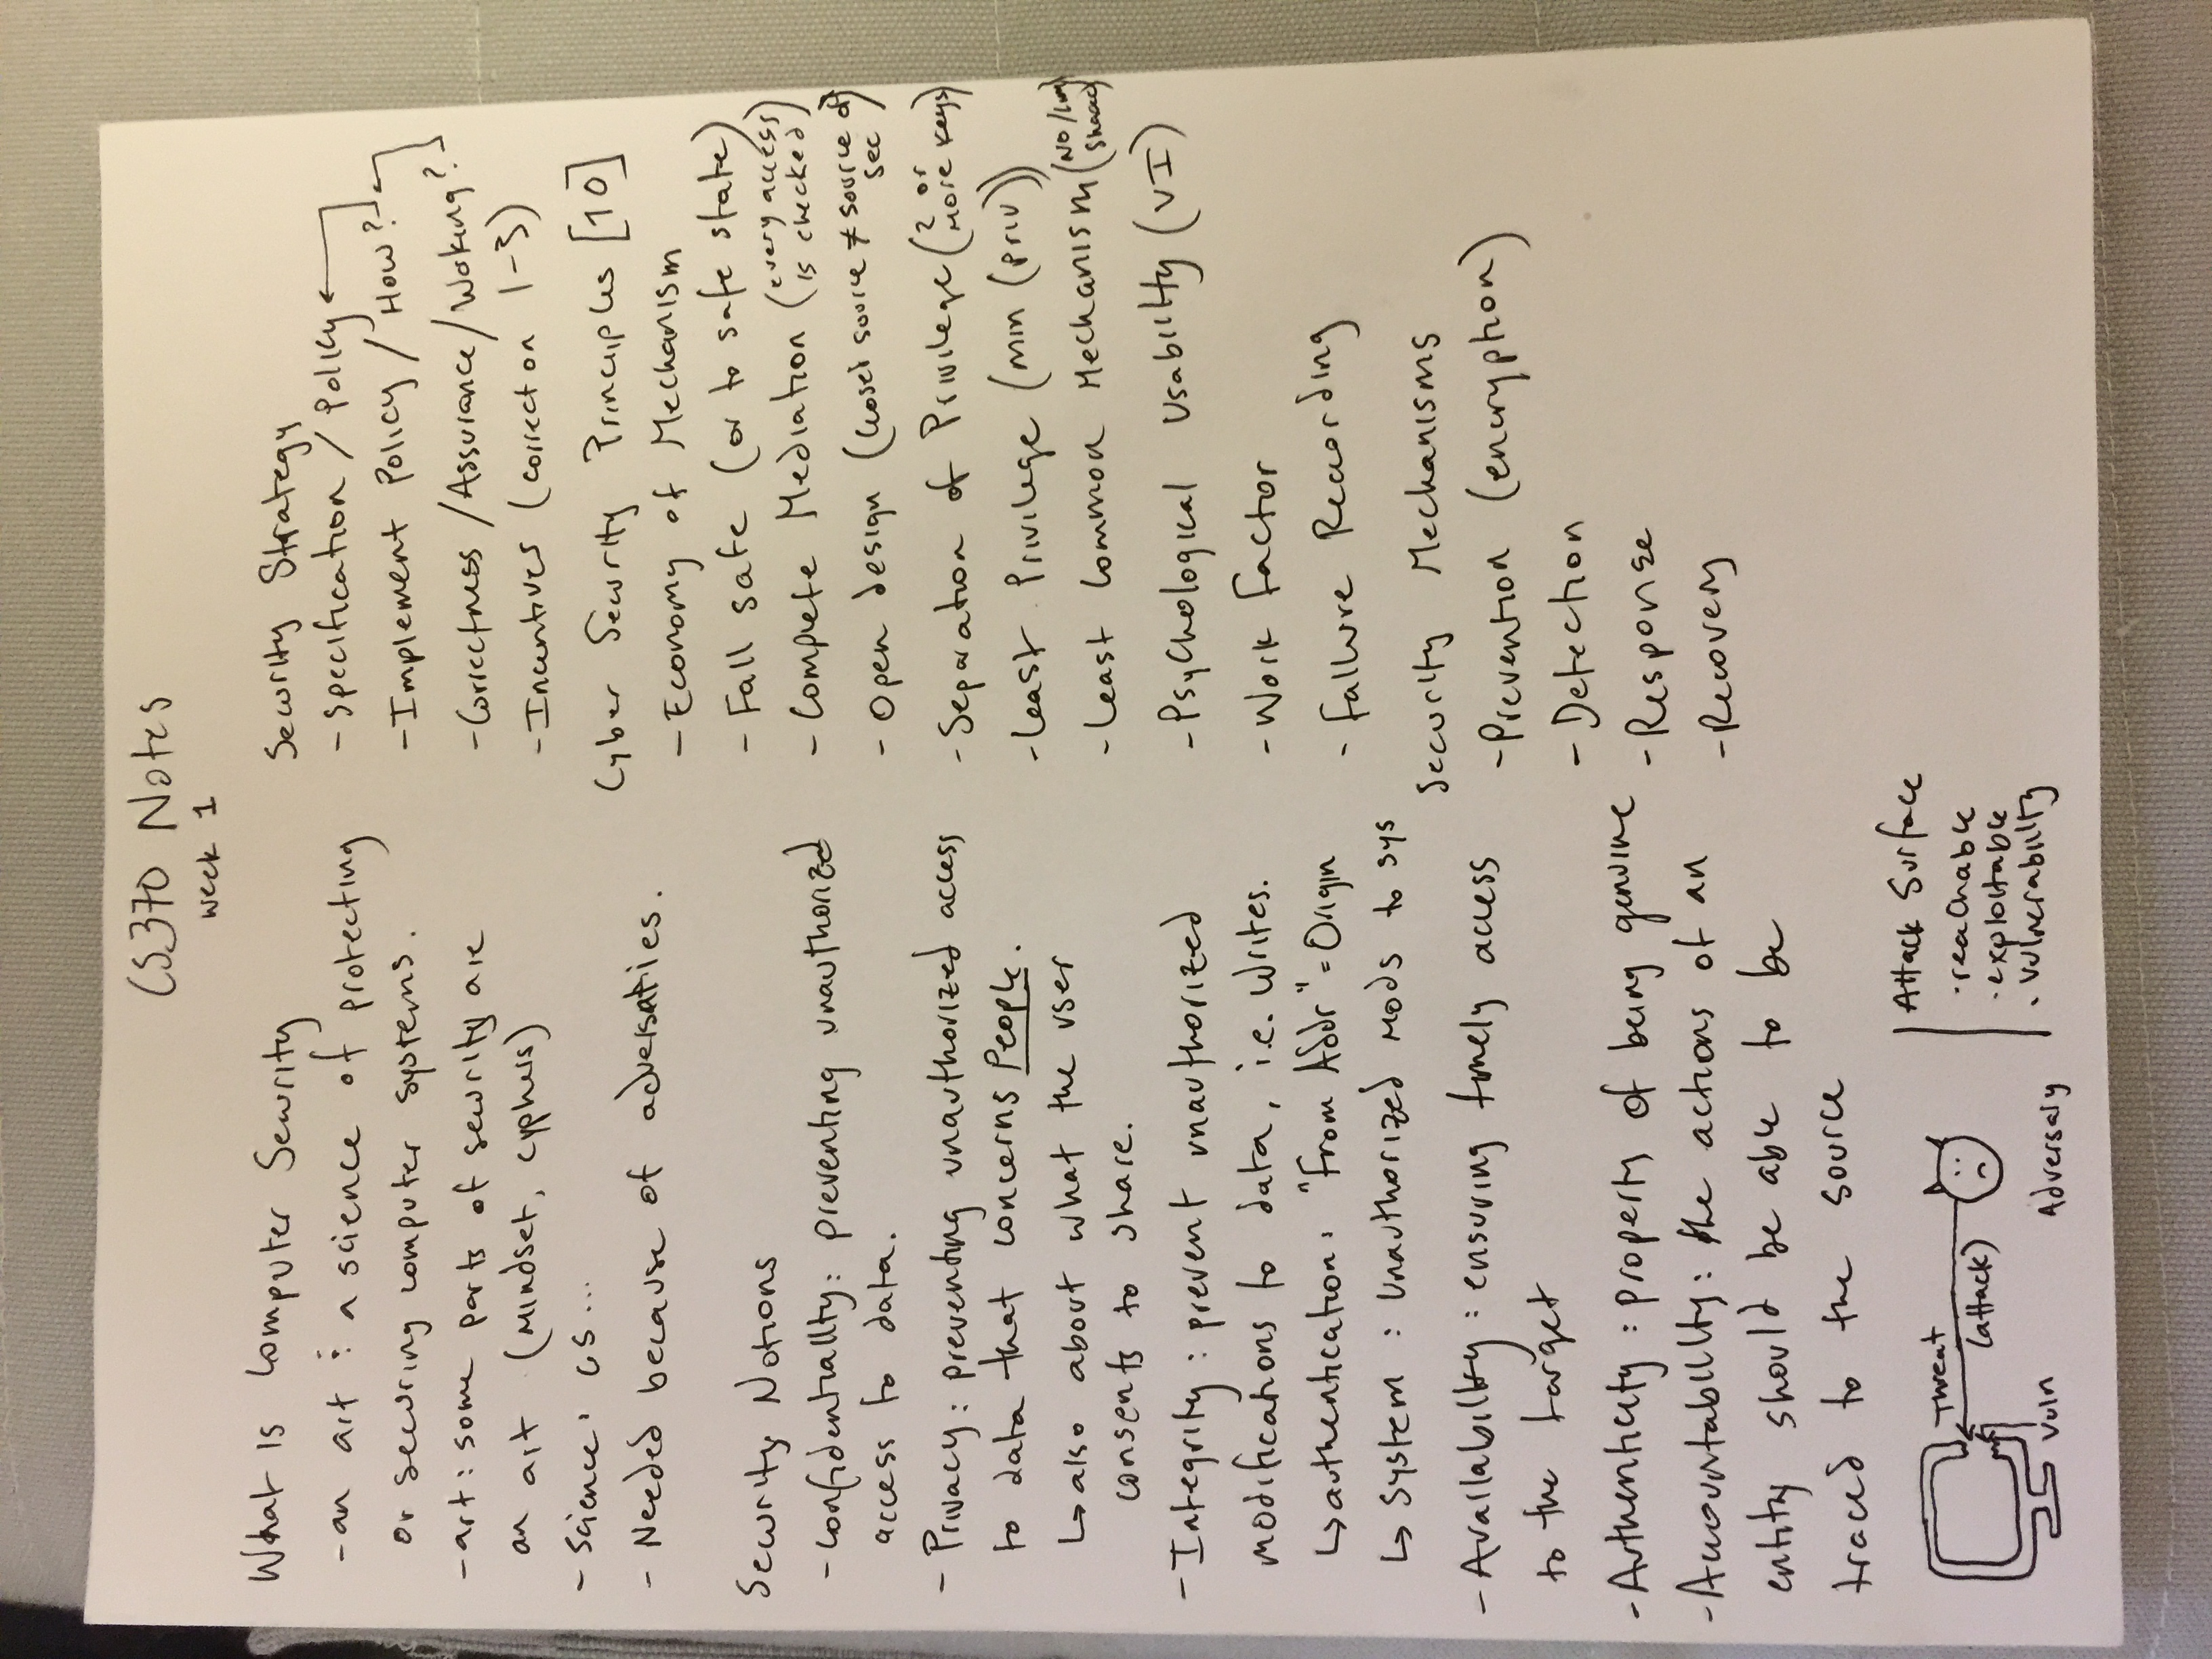 CS370 Notes
week 1
What is Computer Security
- an art & a science of protecting
or securing computer systems.
- art: some parts of security are
an art (mindset, cyphers)
- Science: CS...
- Needed because of adversaries.
Security Notions
- Confidentiality: preventing unauthorized
access to data.
- Privacy: preventing unauthorized access
to data that concerns People.
↳ also about what the user
consents to share.
- Integrity: prevent unauthorized
modifications to data, i.e. writes.
↳ authentication: "From Addr" = Origin
↳ System: Unauthorized mods to sys
- Availability: ensuring timely access
to the target
- Authenticity: property of being genuine
- Accountability: the actions of an
entity should be able to be
traced to the source
Threat
(attack)
Vuln
Adversary
Attack Surface
· reachable
· exploitable
· vulnerability
Security Strategy
- Specification / Policy
- Implement Policy / How?
- Correctness / Assurance / Woking?
- Incentives (correct on 1-3)
Cyber Security Principles [10]
- Economy of Mechanism
- Fail safe (or to safe state)
- Complete Mediation (every access
is checked)
- Open design (closed source ≠ source of
sec)
- Separation of Privilege (2 or
more keys)
- Least Privilege (min (priv))
- Least Common Mechanism (No /
shared)
- Psychological Usability (UI)
- Work Factor
- Failure Recording
Security Mechanisms
- Prevention (encryption)
- Detection
- Response
- Recovery